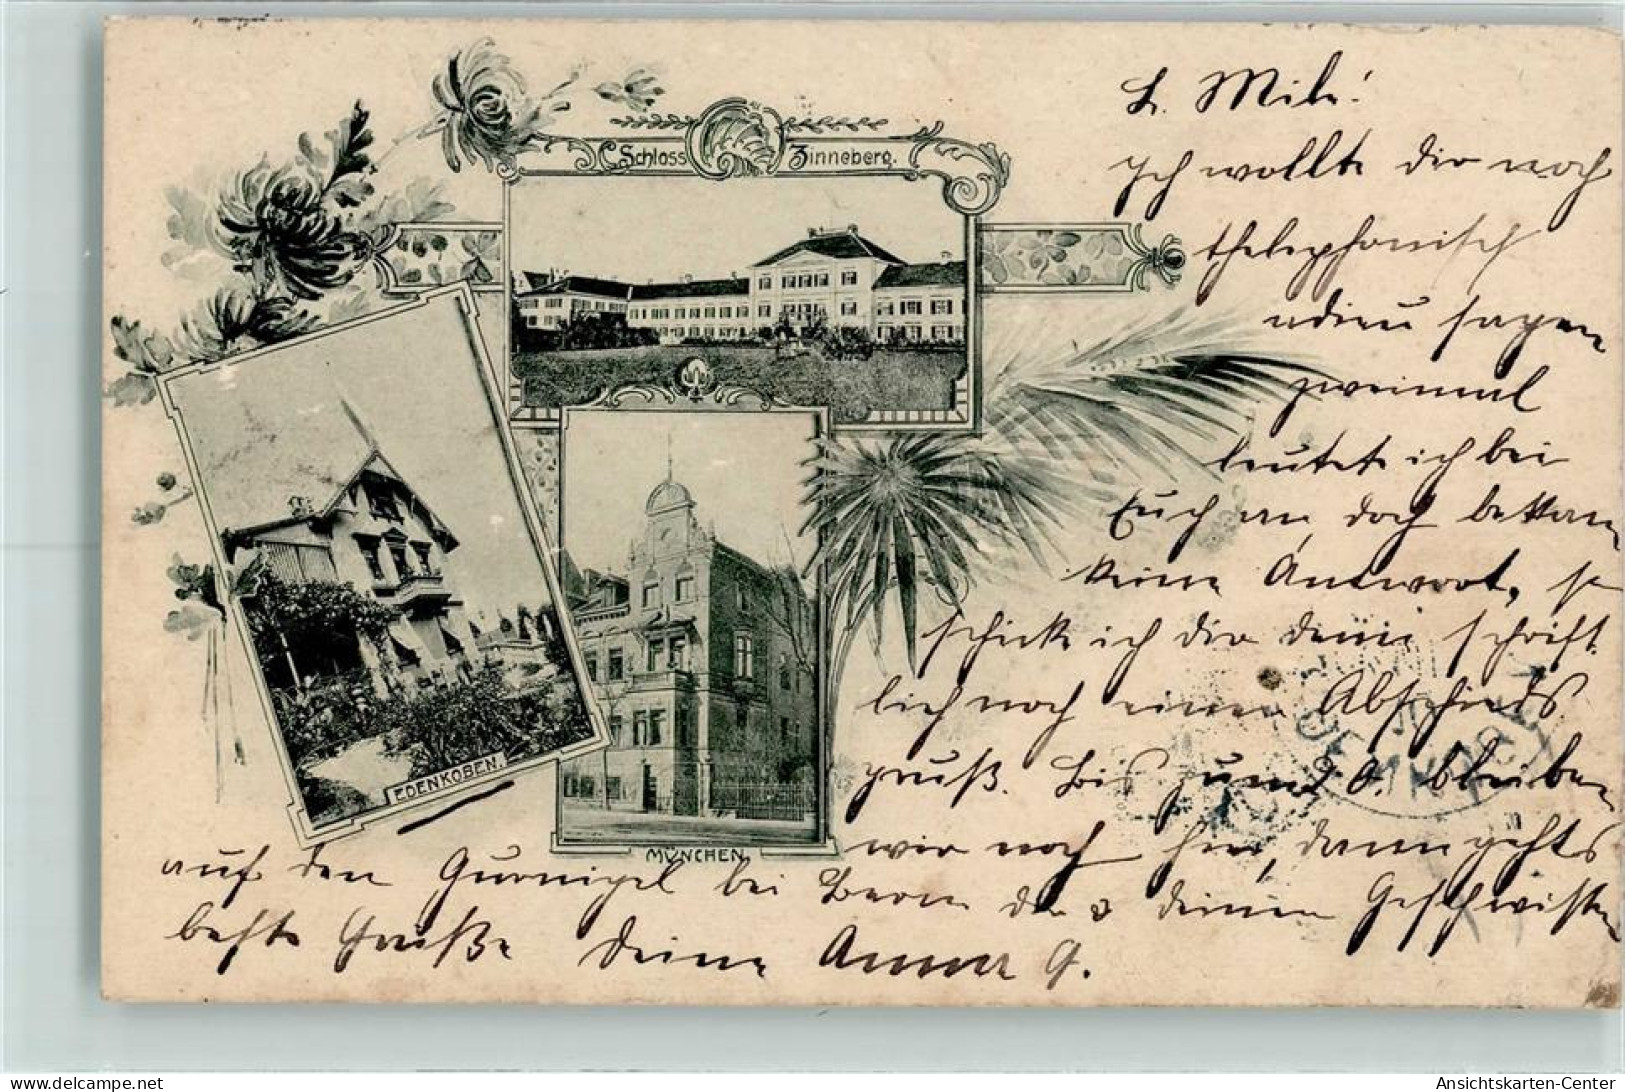 Schloss Zinneberg.
EDENKOBEN.
MÜNCHEN
L. Mile!
Ich wollte dir noch
thelephonisch
adieu sagen
zweimal
leutete ich bei
Euch an, doch bekam
keine Antwort, so
schicke ich dir denn schrift
lich noch einen Abschieds
gruß. Bis zum 20. bleiben
wir noch hier, dann gehts
auf den Gurnigel bei Bern dir & deinen Geschwistern
beste Grüße deine Anna G.
delcampe.net
Ansichtskarten-Center